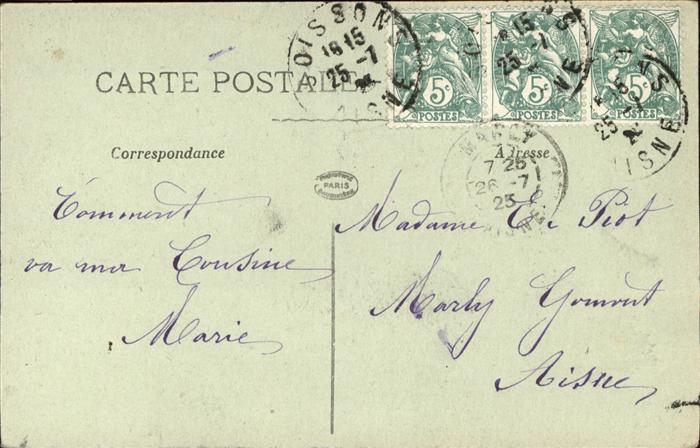 SOISSONS
18 15
25 -7
AISNE
5c
POSTES
5c
POSTES
5c
POSTES
CARTE POSTALE
Correspondance
Adresse
MARLY
7 25
26 -7
25
AISNE
PARIS
Comment
va ma Cousine
Marie
Madame E. Piot
Marly Gomont
Aisne